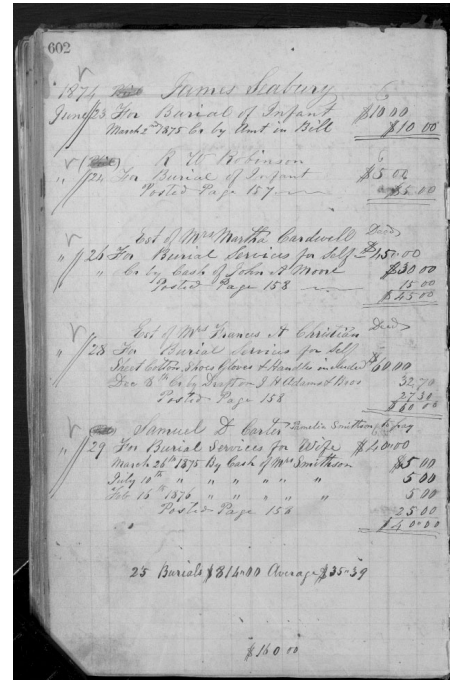 602
1874 James Seabury
June 23 For Burial of Infant $10 00
March 2nd 1875 Cr by Amt in Bill $10 00
R W Robinson
" 24 For Burial of Infant $5 00
Posted Page 157 $5 00
Est of Mrs Martha Cardwell Dead
" 26 For Burial Services for Self $45 00
" Cr by Cash of John A Moore $30 00
Posted Page 158 15 00
$45 00
Est of Mrs Frances A Christian Dead
" 28 For Burial Services for Self
Sheet Cotton, Shoes Gloves & Handles included $60 00
Dec 8th Cr by Draft on J H Adams & Bros 32,70
Posted Page 158 27 30
$60 00
Samuel D Carter Smithson to pay
" 29 For Burial Services for Wife $40 00
March 26th 1875 By Cash of Mrs Smithson $5 00
July 10th " " " " " " 5 00
Feb 16th 1876 " " " " " 5 00
Posted Page 158 25 00
$40 00
23 Burials $814 00 Average $35 39
$160 00